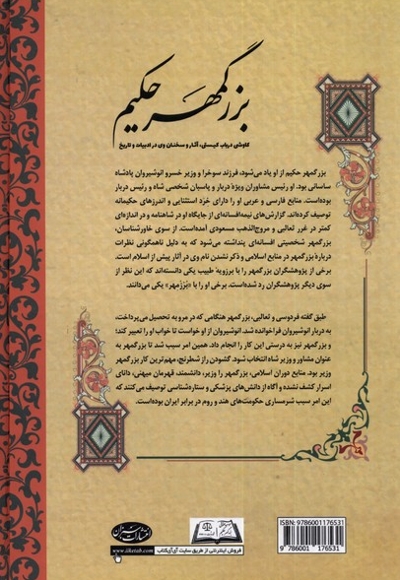 بزرگمهر حکیم
کاوشی در باب کیستی، آثار و سخنان وی در ادبیات و تاریخ
بزرگمهر حکیم از او یاد می‌شود، فرزند سوخرا و وزیر خسرو انوشیروان پادشاه
ساسانی بود. او رئیس مشاوران ویژهٔ دربار و پاسبان شخصی شاه و رئیس دربار
بوده‌است. منابع فارسی و عربی او را دارای خرد استثنایی و اندرزهای حکیمانه
توصیف کرده‌اند. گزارش‌های نیمه‌افسانه‌ای از جایگاه او در شاهنامه و در اندازه‌ای
کمتر در غرر ثعالبی و مروج‌الذهب مسعودی آمده‌است. از سوی خاورشناسان،
بزرگمهر شخصیتی افسانه‌ای پنداشته می‌شود که به دلیل ناهمگونی نظرات
دربارهٔ بزرگمهر در منابع اسلامی و ذکر نشدن نام وی در آثار پیش از اسلام است.
برخی از پژوهشگران بزرگمهر را با برزویهٔ طبیب یکی دانسته‌اند که این نظر از
سوی دیگر پژوهشگران رد شده‌است. برخی او را با «بُرزمهر» یکی می‌دانند.
طبق گفته فردوسی و ثعالبی، بزرگمهر هنگامی که در مرو به تحصیل می‌پرداخت،
به دربار انوشیروان فراخوانده شد. انوشیروان از او خواست تا خواب او را تعبیر کند؛
و بزرگمهر نیز به درستی این کار را انجام داد. همین امر سبب شد تا بزرگمهر به
عنوان مشاور و وزیر شاه انتخاب شود. گشودن راز شطرنج، مهم‌ترین کار بزرگمهر
وزیر بود. منابع دوران اسلامی، بزرگمهر را وزیر، دانشمند، قهرمان میهنی، دانای
اسرار کشف نشده و آگاه از دانش‌های پزشکی و ستاره‌شناسی توصیف می‌کنند که
این امر سبب شرمساری حکومت‌های هند و روم در برابر ایران بوده‌است.
فروش اینترنتی از طریق سایت آی‌آی‌کتاب
www.iiketab.com
ISBN: 9786001176531
9 786001 176531